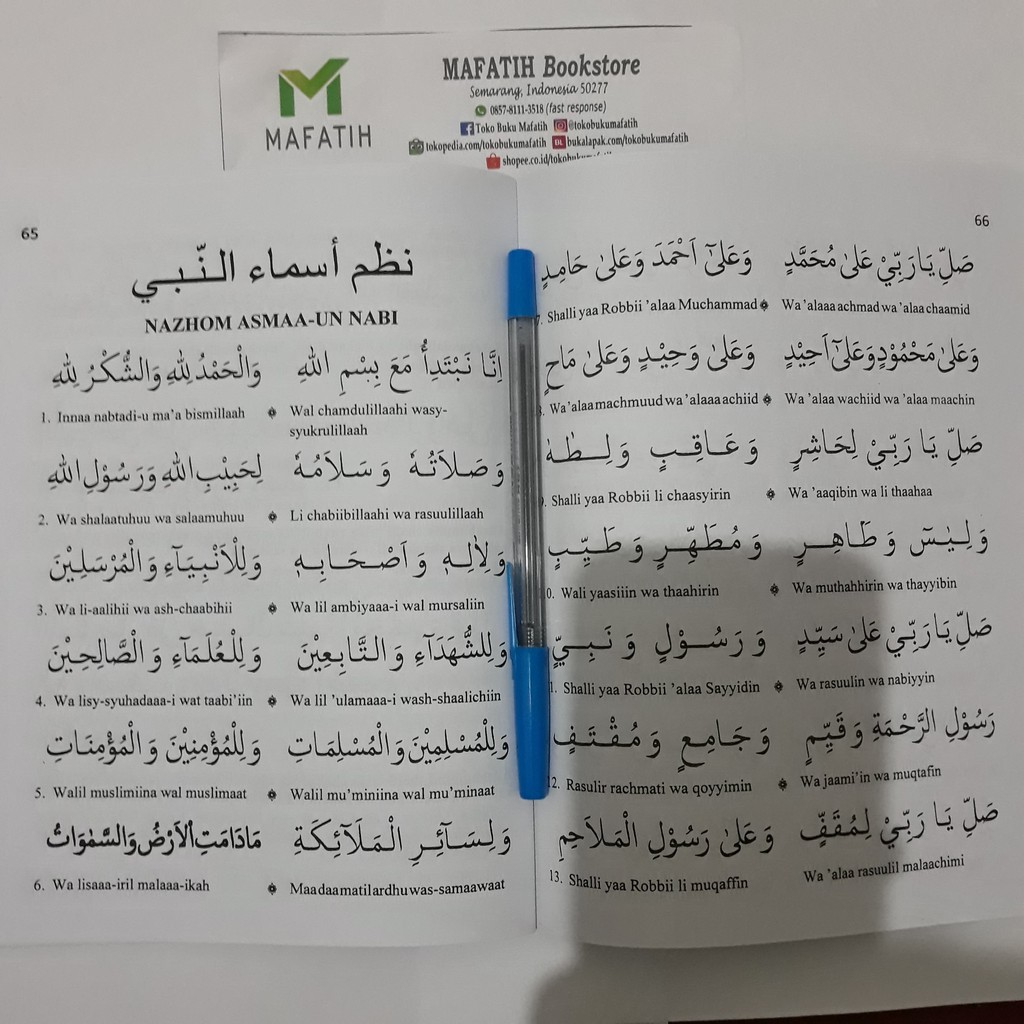 MAFATIH
MAFATIH Bookstore
Semarang, Indonesia 50277
0857-8111-3518 (fast response)
Toko Buku Mafatih @tokobukumafatih
tokopedia.com/tokobukumafatih BL bukalapak.com/tokobukumafatih
shopee.co.id/
65
نظم أسماء النّبي
NAZHOM ASMAA-UN NABI
اِنَّا نَبْتَدِأُ مَعَ بِسْمِ اللهِ وَالْحَمْدُ لِلهِ وَالشُّكْرُ لِلهِ
1. Innaa nabtadi-u ma'a bismillaah Wal chamdulillaahi wasy-
syukrulillaah
وَصَلاَتُهُ وَسَلاَمُهُ لِحَبِيْبِ اللهِ وَرَسُوْلِ اللهِ
2. Wa shalaatuhuu wa salaamuhuu Li chabiibillaahi wa rasuulillaah
وَلِاٰلِهٖ وَاَصْحَابِهٖ وَلِلْاَنْبِيَآءِ وَالْمُرْسَلِيْنَ
3. Wa li-aalihii wa ash-chaabihii Wa lil ambiyaaa-i wal mursaliin
وَلِلشُّهَدَآءِ وَالتَّابِعِيْنَ وَلِلْعُلَمَآءِ وَالصَّالِحِيْنَ
4. Wa lisy-syuhadaaa-i wat taabi'iin Wa lil 'ulamaaa-i wash-shaalichiin
وَلِلْمُسْلِمِيْنَ وَالْمُسْلِمَاتِ وَلِلْمُؤْمِنِيْنَ وَالْمُؤْمِنَاتِ
5. Walil muslimiina wal muslimaat Walil mu'miniina wal mu'minaat
وَلِسَآئِرِ الْمَلَآئِكَةِ مَادَامَتِ الْاَرْضُ وَالسَّمٰوَاتُ
6. Wa lisaaa-iril malaaa-ikah Maadaamatilardhuwas-samaawaat
66
صَلِّ يَا رَبِّيْ عَلىٰ مُحَمَّدٍ وَعَلىٰٓ اَحْمَدَ وَعَلىٰ حَامِدٍ
7. Shalli yaa Robbii 'alaa Muchammad Wa 'alaaa achmad wa 'alaa chaamid
وَعَلىٰ مَحْمُوْدٍ وَعَلىٰٓ اَحِيْدٍ وَعَلىٰ وَحِيْدٍ وَعَلىٰ مَاحٍ
. Wa 'alaa machmuud wa 'alaaa achiid Wa 'alaa wachiid wa 'alaa maachin
صَلِّ يَا رَبِّيْ لِحَاشِرٍ وَعَاقِبٍ وَلِطٰهٰ
. Shalli yaa Robbii li chaasyirin Wa 'aaqibin wa li thaahaa
وَلِيٰسٓ وَطَاهِرٍ وَمُطَهِّرٍ وَطَيِّبٍ
0. Wali yaasiiin wa thaahirin Wa muthahhirin wa thayyibin
صَلِّ يَا رَبِّيْ عَلىٰ سَيِّدٍ وَرَسُوْلٍ وَنَبِيٍّ
1. Shalli yaa Robbii 'alaa Sayyidin Wa rasuulin wa nabiyyin
رَسُوْلِ الرَّحْمَةِ وَقَيِّمٍ وَجَامِعٍ وَمُقْتَفٍ
12. Rasulir rachmati wa qoyyimin Wa jaami'in wa muqtafin
صَلِّ يَا رَبِّيْ لِمُقَفٍّ وَعَلىٰ رَسُوْلِ الْمَلاَحِمِ
13. Shalli yaa Robbii li muqaffin Wa 'alaa rasuulil malaachimi